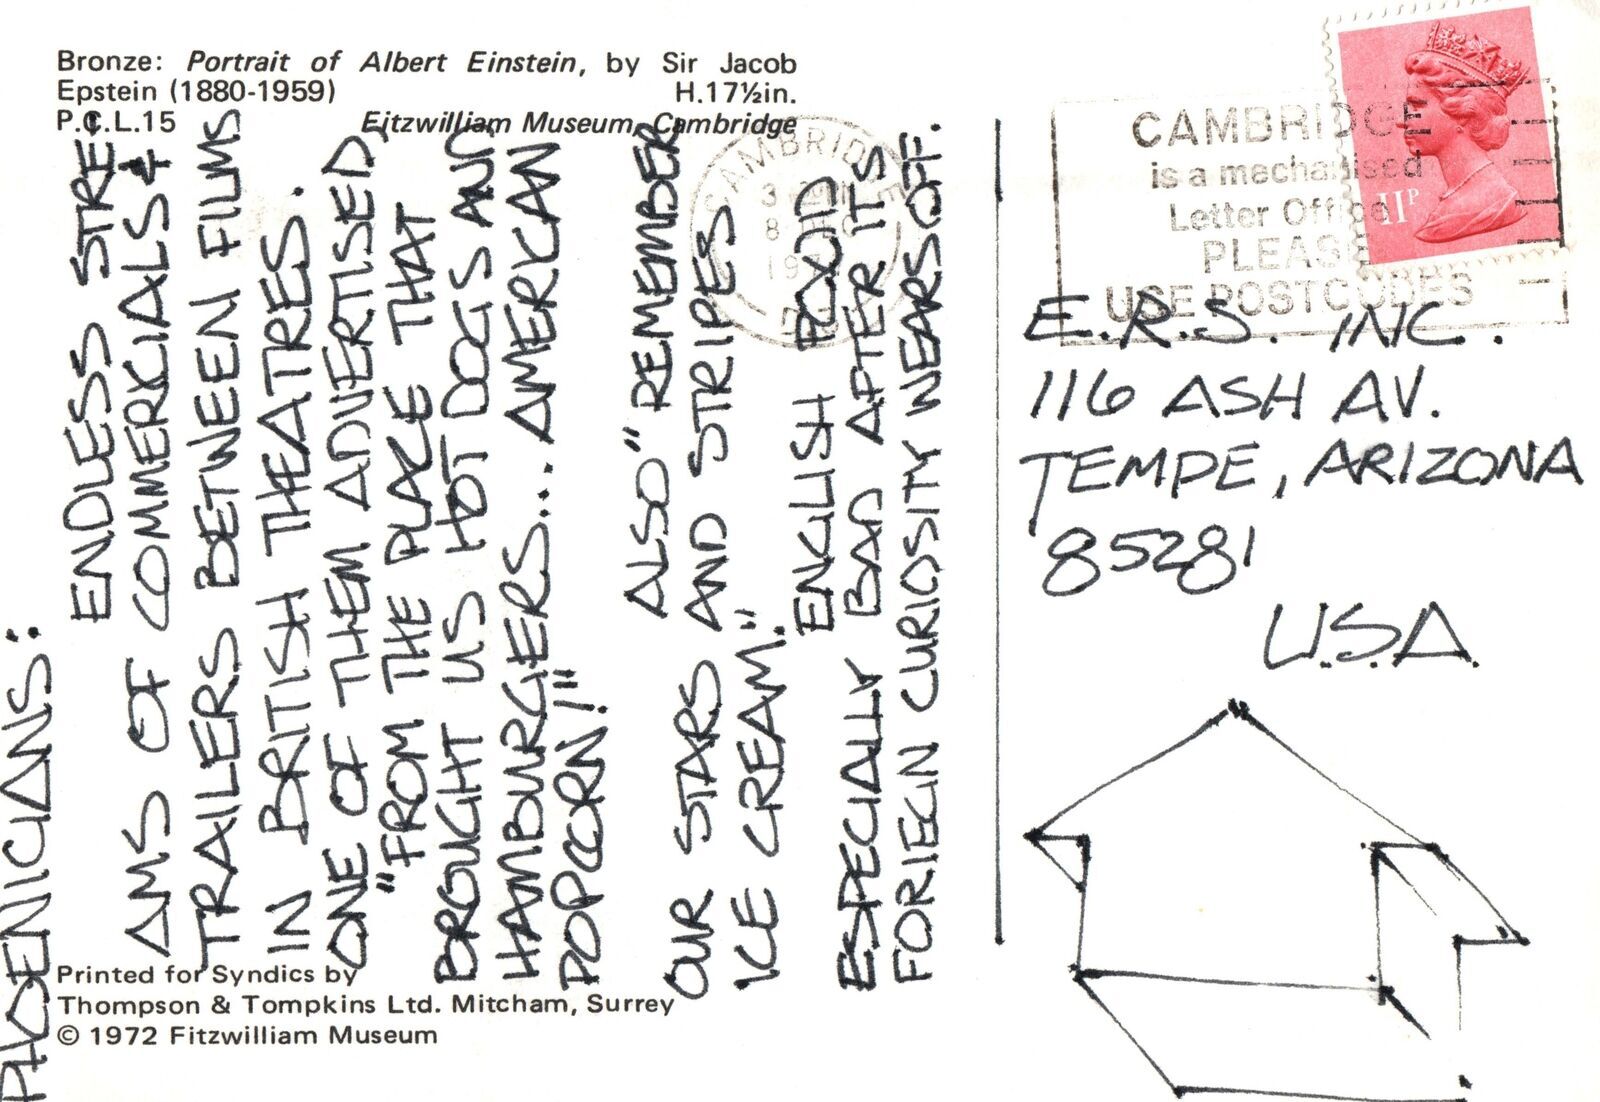 Bronze: Portrait of Albert Einstein, by Sir Jacob
Epstein (1880-1959) H.17½in.
P.C.L.15 Fitzwilliam Museum, Cambridge
PHOENICIANS:
ENDLESS STRE
AMS OF COMMERCIALS &
TRAILERS BETWEEN FILMS
IN BRITISH THEATRES.
ONE OF THEM ADVERTISED,
"FROM THE PLACE THAT
BROUGHT US HOT DOGS AND
HAMBURGERS... AMERICAN
POPCORN!"
ALSO "REMEMBER
OUR STARS AND STRIPES
ICE CREAM."
ENGLISH FOOD
ESPECIALLY BAD AFTER ITS
FORIEGN CURIOSITY WEARS OFF.
Printed for Syndics by
Thompson & Tompkins Ltd. Mitcham, Surrey
© 1972 Fitzwilliam Museum
CAMBRIDGE
8 DEC
CAMBRIDGE
is a mechanised
Letter Office
PLEASE
USE POSTCODES
11P
E.R.S. INC.
116 ASH AV.
TEMPE, ARIZONA
85281
U.S.A.